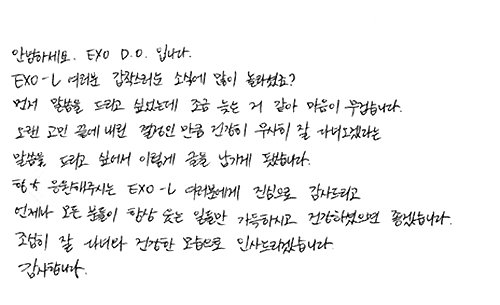 안녕하세요. EXO D.O. 입니다.
EXO-L 여러분 갑작스러운 소식에 많이 놀라셨죠?
먼저 말씀을 드리고 싶었는데 조금 늦은 거 같아 마음이 무겁습니다.
오랜 고민 끝에 내린 결정인 만큼 건강히 무사히 잘 다녀오겠다는
말씀을 드리고 싶어서 이렇게 글을 남기게 됐습니다.
항상 응원해주시는 EXO-L 여러분에게 진심으로 감사드리고
언제나 모든 분들이 항상 웃는 일들만 가득하시고 건강하셨으면 좋겠습니다.
조심히 잘 다녀와 건강한 모습으로 인사드리겠습니다
감사합니다.